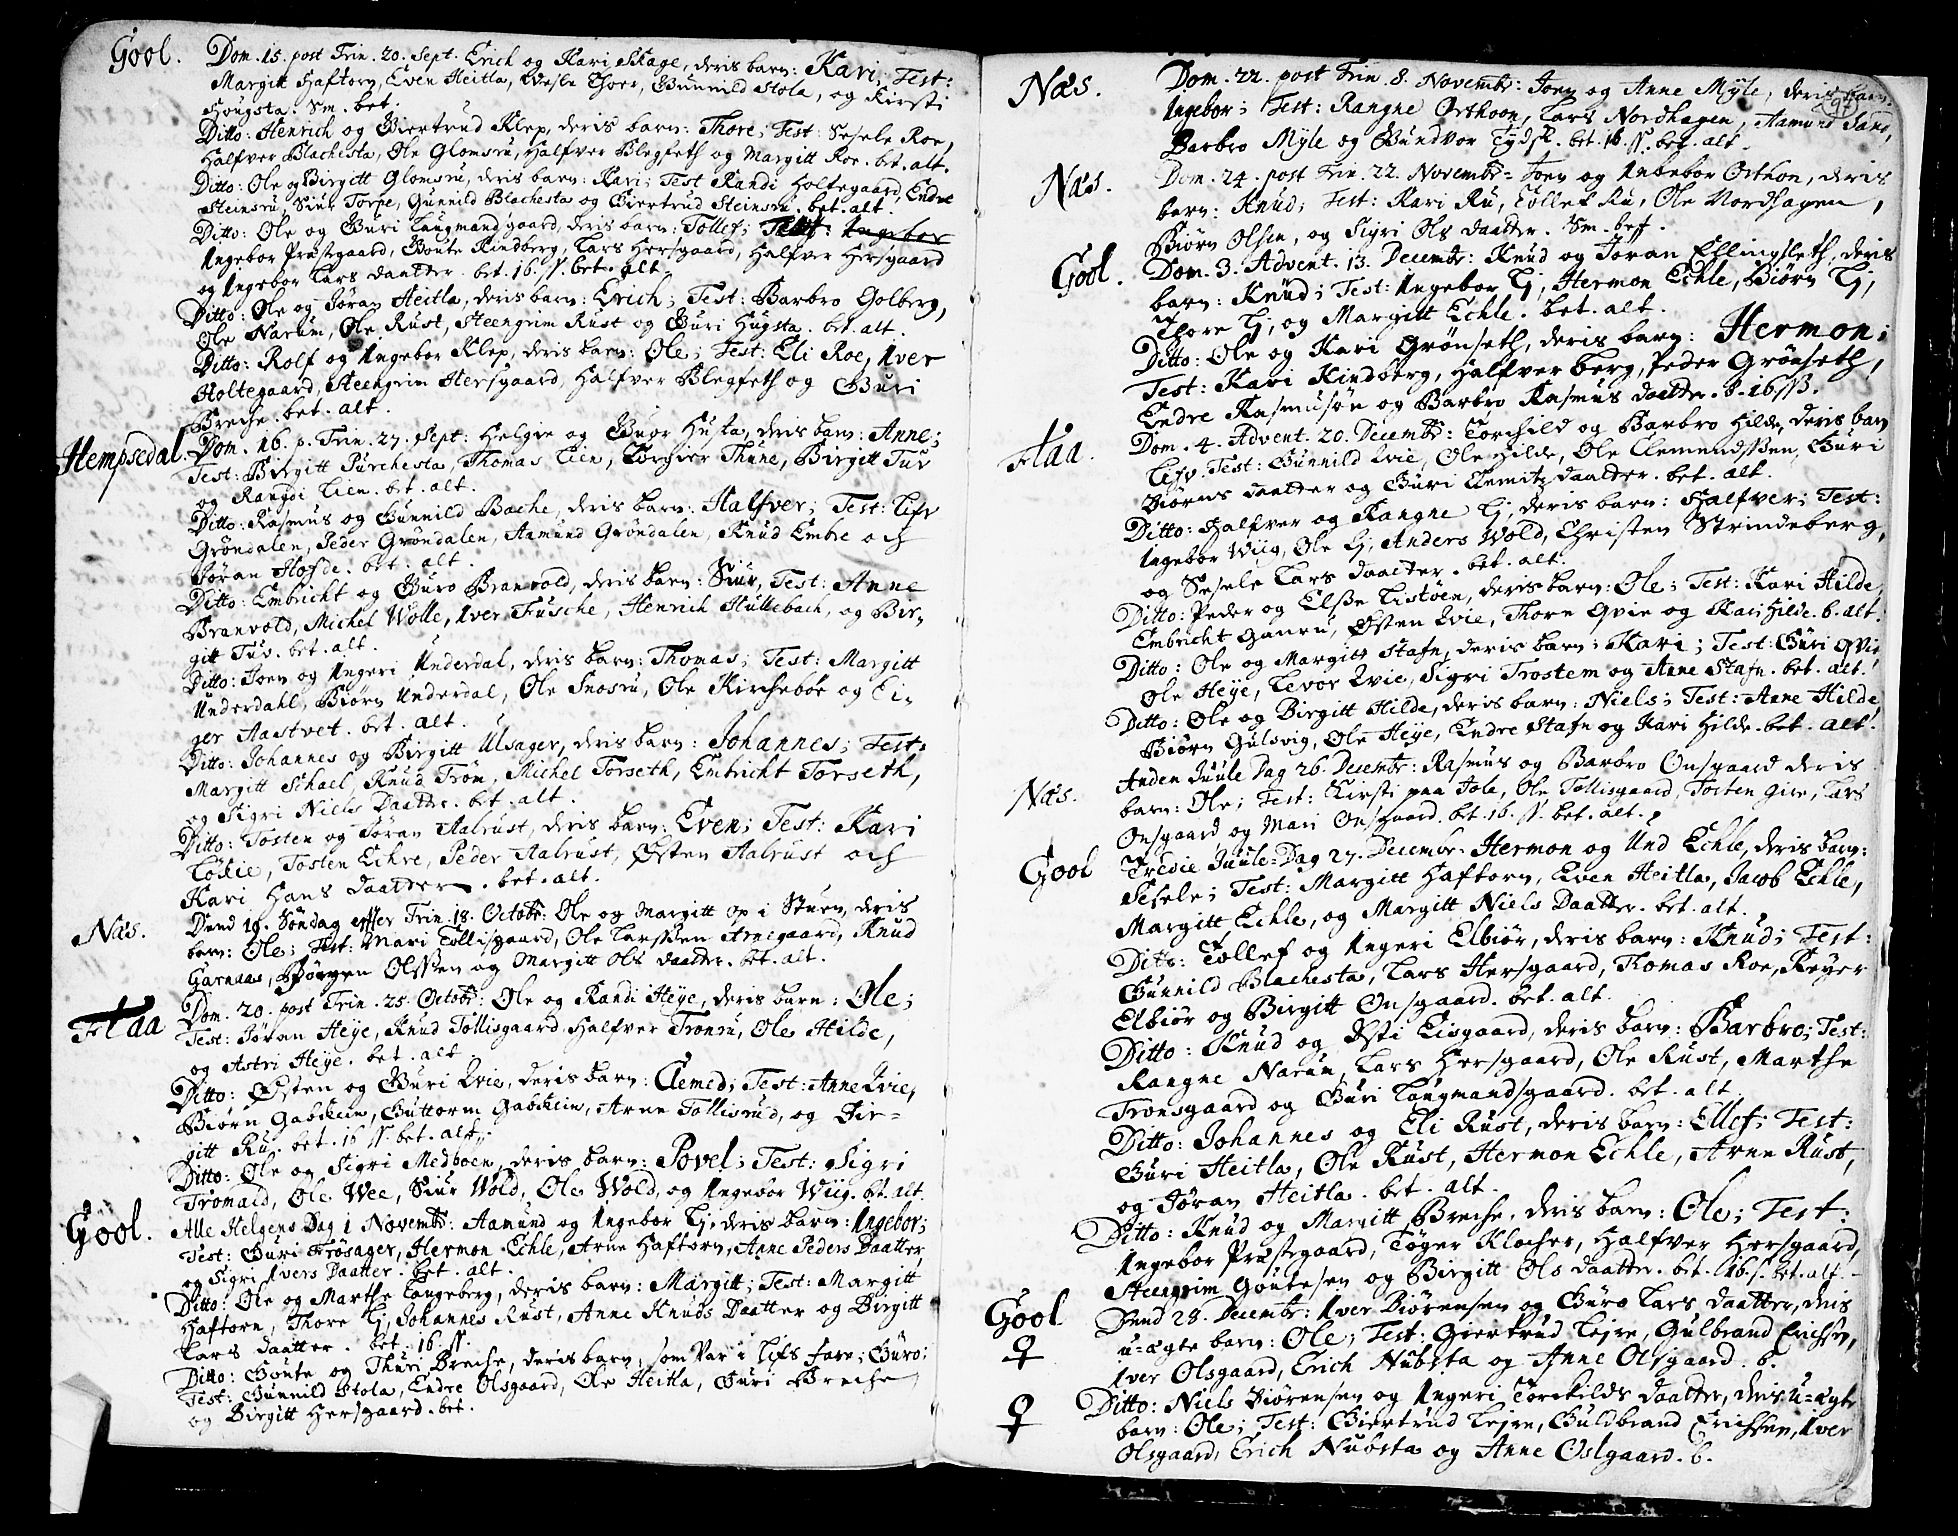 Gool. Dom. 15. post Trin. 20. Sept. Erich og Kari Skage, deris barn: Kari; Test:
Margitt Haftorn, Even Heitla, Thore, Gunnild Stola, og Kirsti
Hougsta. Sm. bet.
Ditto: Henrich og Giertrud Klep, deris barn: Thore; Test: Sesele Roe,
Halfver Blachesta, Ole Glomsru, Halfver Blegseth og Margitt Roe. bet. alt.
Ditto: Ole og Birgitt Glomsru, deris barn: Kari; Test Randi Holtegaard, Endre
Steinsru, Siur Torpe, Gunnild Blachesta og Giertrud Steinsru. bet. alt.
Ditto: Ole og Guri Laugmandsgaard, deris barn: Tollef; Test: Ingebor
Ingebor Præstgaard, Goute Kindberg, Lars Hersgaard, Halfver Hersgaard
og Ingebor Lars daatter. bet. 16. ß. bet. alt.
Ditto: Ole og Jøran Heitla, deris barn: Erich; Test: Barbro Golberg,
Ole Narum, Ole Rust, Steengrim Rust og Guri Hugsta. bet. alt.
Ditto: Rolf og Ingebor Klep, deris barn: Ole; Test: Eli Roe, Iver
Holtegaard, Steengrim Hersgaard, Halfver Blegseth og Guri
Breche. bet. alt.
Hempsedal. Dom. 16. p. Trin. 27. Sept: Helgie og Guor Husta, deris barn: Anne;
Test: Birgitt Purchesta, Thomas Lien, Torgier Thune, Birgitt Tuv
og Rangdi Lien. bet. alt.
Ditto: Rasmus og Gunnild Bache, deris barn: Halfver; Test: Lifv
Grøndalen, Peder Grøndalen, Aamund Grøndalen, Knud Embre och
Jøran Hofde. bet. alt.
Ditto: Embricht og Guro Branvold, deris barn: Siur, Test: Anne
Branvold, Michel Wolle, Iver Fusche, Henrich Hullebach, og Bir,
gitt Tuv. bet. alt.
Ditto: Joen og Ingeri Underdal, deris barn: Thomas; Test: Margitt
Underdahl, Biørn Underdal, Ole Snosru, Ole Kirchebøe og Ei,
ger Aastvet. bet. alt.
Ditto: Johannes og Birgitt Ulsager, deris barn: Johannes; Test:
Margitt Schael, Knud Trøn, Michel Torseth, Embricht Torseth,
og Sigri Niels Daatter. bet. alt.
Ditto: Tosten og Jøran Aalrust, deris barn: Even; Test: Kari
Løkie, Tosten Echre, Peder Aalrust, Østen Aalrust och
Kari Hans daatter. bet. alt.
Næs. Dend 19. Søndag effter Trin. 18. Octobr: Ole og Margitt op i Stuen, deris
barn: Ole; Test: Mari Tollisgaard, Ole Larssen Arnegaard, Knud
Garnaas, Børgen Olssen og Margitt Ols daatter. bet. alt.
Flaa Dom. 20. post Trin. 25. Octobr: Ole og Randi Heÿe, deris barn: Ole;
Test: Jøran Heÿe, Knud Tollisgaard, Halfver Tronru, Ole Hilde,
og Astri Heÿe. bet. alt
Ditto: Østen og Guri Qvie, deris barn: Clemed; Test: Anne Qvie,
Biørn Gabchein, Guttorm Gabchein, Arne Tollisrud, og Bir=
gitt Ru. bet. 16 ß. bet. alt.
Ditto: Ole og Sigri Medboen, deris barn: Povel; Test: Sigri
Tromald, Ole Wee, Siur Wold, Ole Wold, og Ingebor Wiig. bet. alt.
Gool. Alle Helgens Dag 1 Novembr: Aamund og Ingebor Lj, deris barn: Ingebor;
Test: Guri Frøsager, Hermon Echle, Arne Haftorn, Anne Peders Daatter,
og Sigri Ivers Daatter. bet. alt.
Ditto: Ole og Marthe Langeberg, deris barn: Margitt; Test: Margitt
Haftorn, Thore Lj, Johannes Rust, Anne Knuds Daatter og Birgitt
Lars daatter. bet. 16 ß.
Ditto: Goute og Thuri Breche, deris barn, som var i Lifs fare; Guro;
Test: Gunnild Stola, Endre Olsgaard, Ole Heitla, Guri Breche
og Birgitt Hersgaard. bet.
97
Næs. Dom. 22. post Trin. 8. Novembr: Joen og Anne Myle, deris barn:
Ingebor; Test: Rangne Orthoon, Lars Nordhagen, Aamund Sand,
Barbro Myle og Gundvor Tydsk. bet. 16. ß. bet. alt.
Næs. Dom. 24. post Trin. 22. Novembr: Joen og Ingebor Orthon, deris
barn: Knud; Test: Kari Ru, Tollef Ru, Ole Nordhagen,
Biørn Olsen, og Sigri Ols daatter. Sm. bet.
Gool. Dom. 3. Advent. 13. Decembr: Knud og Jøran Ellingseth, deris
barn: Knud; Test: Ingebor Lj, Hermon Echle, Biørn Lj,
Thore Lj, og Margitt Echle. bet. alt.
Ditto: Ole og Kari Grønseth, deris barn: Hermon;
Test: Kari Kindberg, Halfver Berg, Peder Grønseth,
Endre Rasmusøn og Barbro Rasmus daatter. b. 16 ß.
Flaa. Dom. 4. Advent. 20. Decembr: Torchild og Barbro Hilde, deris barn
Lifv. Test: Gunnild Qvie, Ole Hilde, Ole Clemendssen, Guri
Biørns daatter og Guri Clemitz daatter. bet. alt.
Ditto: Halfver og Rangne Lj, deris barn: Halfver; Test:
Ingebor Wiig, Ole Lj, Anders Wold, Christen Strindeberg,
og Sesele Lars daatter. bet. alt.
Ditto: Peder og Elsse Listøen, deris barn: Ole; Test: Kari Hilde,
Embricht Ganru, Østen Qvie, Thore Qvie og Kari Hilde. b. alt.
Ditto: Ole og Margitt Stafn, deris barn: Kari; Test: Guri Qvie
Ole Heÿe, Levor Qvie, Sigri Trostem og Anne Stafn. bet. alt.
Ditto: Ole og Birgitt Hilde, deris barn: Niels; Test: Anne Hilde,
Biørn Gulsvig, Ole Heÿe, Endre Stafn og Kari Hilde. bet. alt.
Næs. Anden Juule Dag 26. Decembr: Rasmus og Barbro Onsgaard deris
barn: Ole; Test: Kirsti paa Jole, Ole Tollisgaard, Tosten Gire, Lars
Onsgaard og Mari Onsgaard. bet. 16. ß. bet. alt.
Gool Tredie Juule-Dag 27. Decembr. Hermon og Und Echle, deris barn:
Sesele; Test: Margitt Haftorn, Even Heitla, Jacob Echle,
Margitt Echle, og Margitt Niels Daatter. bet. alt.
Ditto: Tollef og Ingeri Elbiør, deris barn: Knud; Test:
Gunnild Blachesta, Lars Hersgaard, Thomas Roe, Reyer
Elbiør og Birgitt Onsgaard. bet. alt.
Ditto: Knud og Østi Eisgaard, deris barn: Barbro; Test:
Rangne Narum, Lars Hersgaard, Ole Rust, Marthe
Tronsgaard og Guri Laugmandsgaard. bet. alt.
Ditto: Johannes og Eli Rust, deris barn: Ellef; Test:
Guri Heitla, Ole Rust, Hermon Echle, Arne Rust,
og Jøran Heitla. bet. alt.
Ditto: Knud og Margitt Breche, deris barn: Ole; Test:
Ingebor Præstgaard, Tøger Klocher, Halfver Hersgaard,
Steengrim Goutesen og Birgitt Ols daatter. bet. 16. ß. bet. alt.
Gool Dend 28. Decembr: Iver Biørensen og Guro Lars daatter, deris
♀ u=ægte barn: Ole; Test: Giertrud Lejre, Gulbrand Erichsen,
Iver Olsgaard, Erich Nubsta og Anne Olsgaard. b.
♀ Ditto: Niels Biørensen og Ingeri Torchilds daatter, deris u=ægte
barn: Ole; Test: Giertrud Lejre, Guldbrand Erichsen, Iver
Olsgaard, Erich Nubsta og Anne Oslgaard. b.